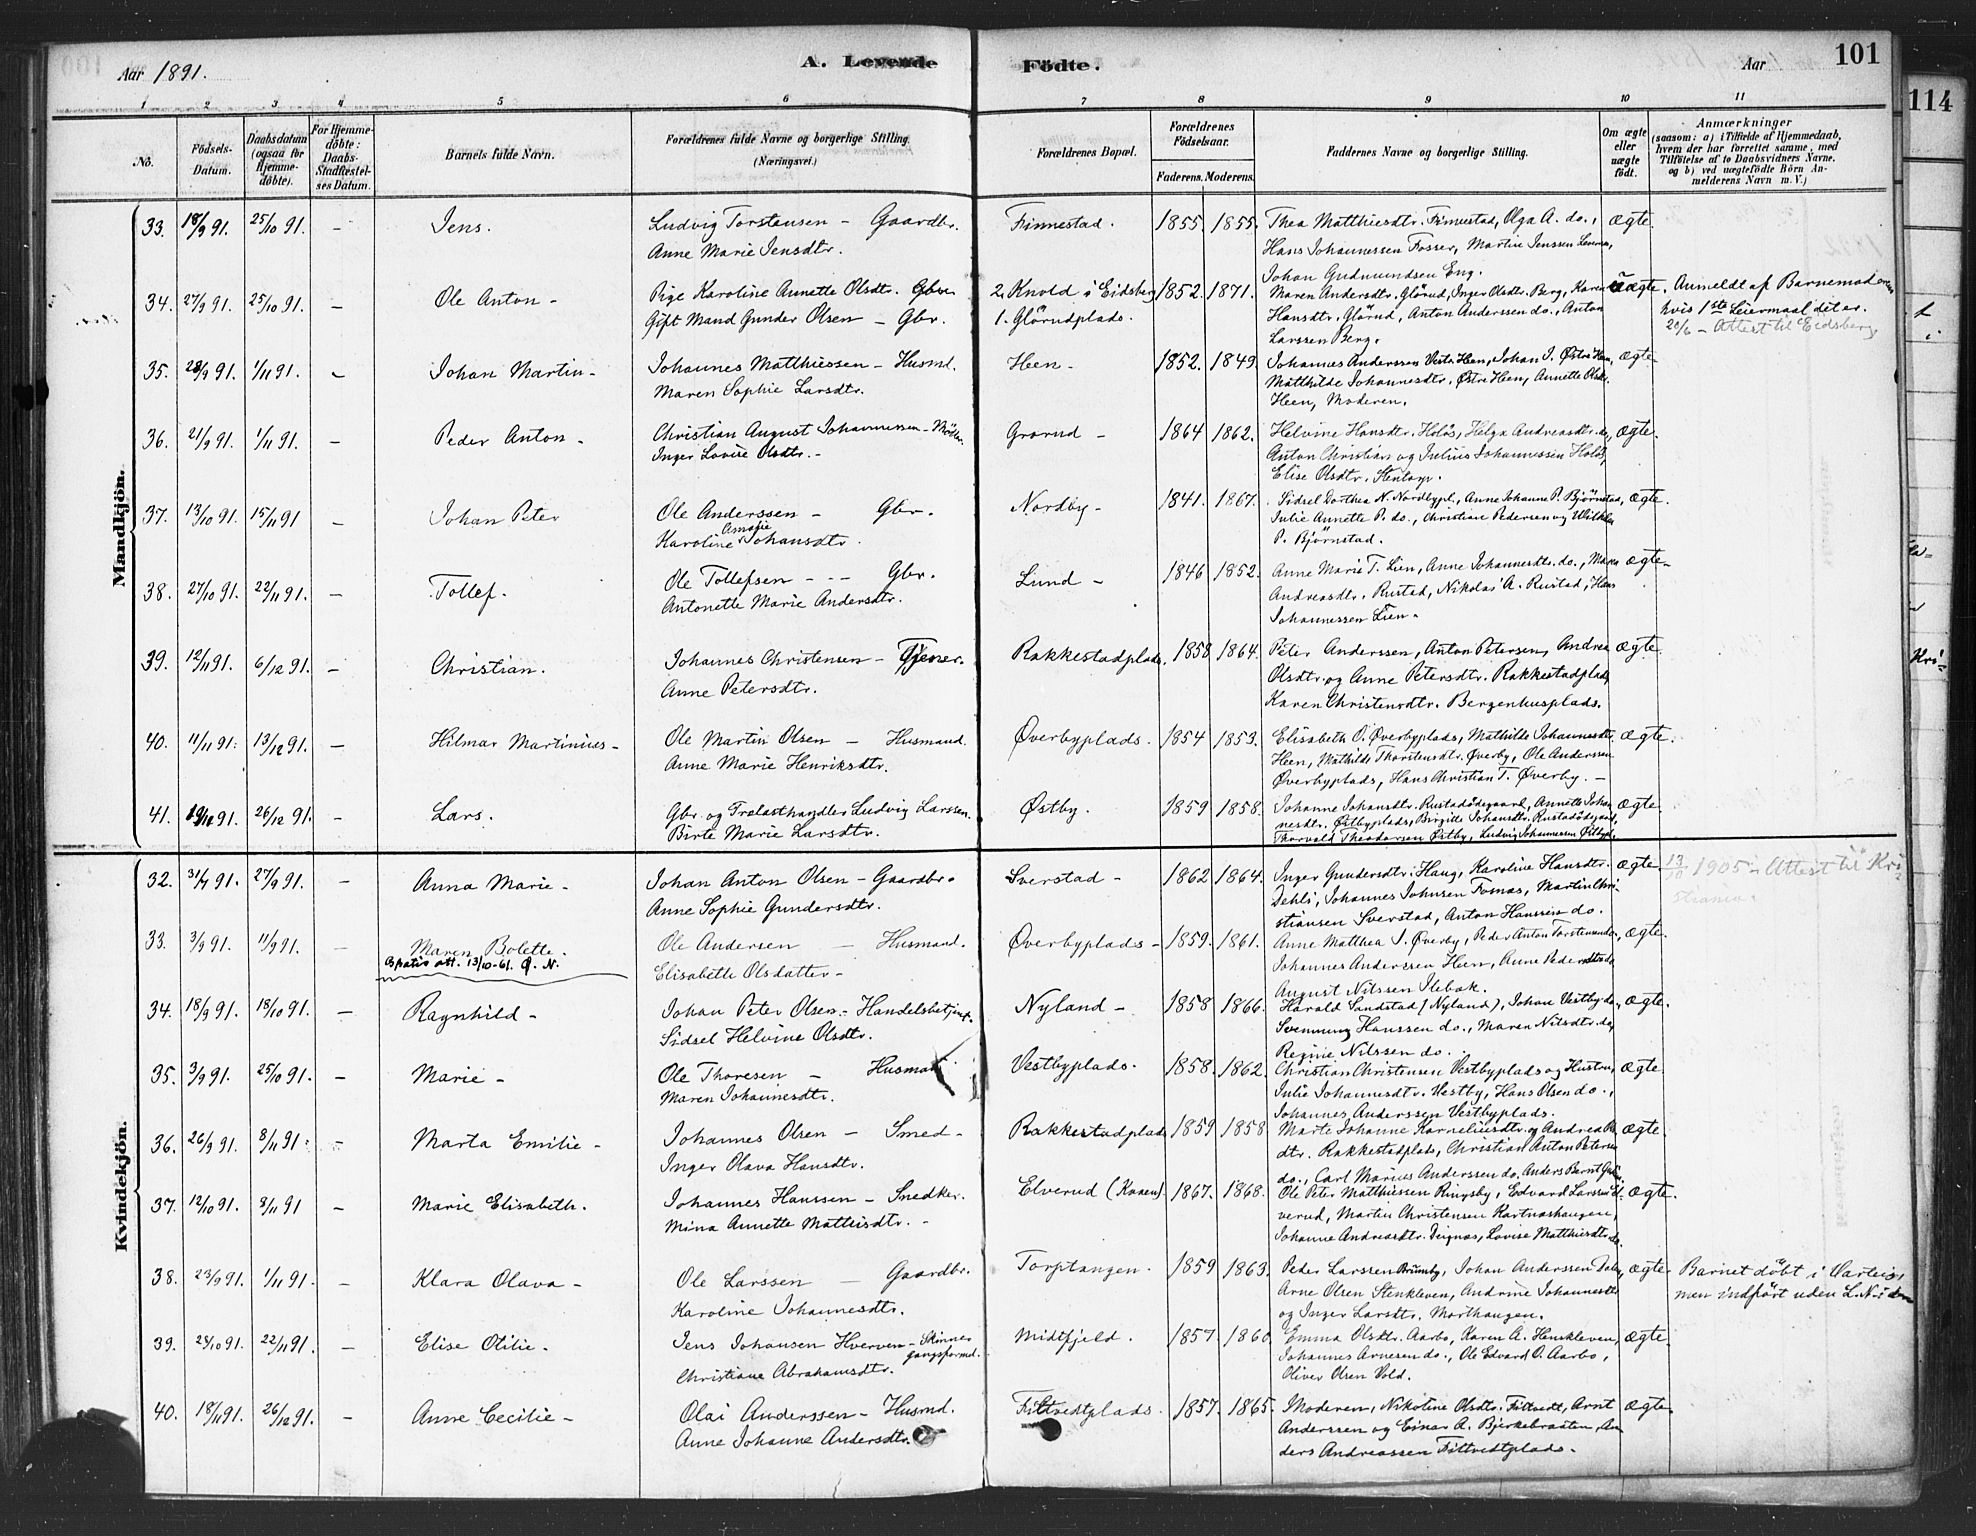 Aar 1891.
A. Levende
Fødte.
Aar
101
114
1 2 3 4 5 6 7 8 9 10 11
No.
Fødsels-Datum.
Daabsdatum (ogsaa for Hjemmedøbte).
For Hjemmedøbte: Daabs-Stadfæstelses Datum.
Barnets fulde Navn.
Forældrenes fulde Navne og borgerlige Stilling. (Næringsvei.)
Forældrenes Bopæl.
Forældrenes Fødselsaar.
Faderens. Moderens.
Faddernes Navne og borgerlige Stilling.
Om ægte eller uægte født.
Anmærkninger
(saasom: a) i Tilfælde af Hjemmedaab, hvem der har forrettet samme, med Tilføielse af to Daabsvidners Navne, og b) ved uægtefødte Børn Anmelderens Navn m. V.)
Mandkjön.
33. 18/9 91. 25/10 91. – Jens. Ludvig Torstensen – Gaardbr. Finnestad. 1855. 1855. Thea Matthiesdtr. Finnestad, Olga A. do., ægte.
Anne Marie Jensdtr. Hans Johannessen Fosser, Martin Jenssen
Johan Gudmundsen Eng.
34. 27/9 91. 25/10 91. – Ole Anton – Pige Karoline Annette Olsdtr. 2. Knold i Eidsberg 1852. 1871. Maren Andersdtr. Glörud, Inger Olsdtr. Berg, Karen uægte. Anmeldt af Barnemoderen
Gift Mand Gunder Olsen – Gbr. 1. Glörudplads. Hansdtr. Glörud, Anton Anderssen do., Anton hvis 1ste Leiermaal det er.
Larssen Berg. 20/6 – Attest til Eidsberg
35. 28/9 91. 1/11 91. – Johan Martin – Johannes Matthiessen – Husmd. Heen – 1852. 1849. Johannes Anderssen Vestre Heen, Johan J. Østre Heen, ægte –
Maren Sophie Larsdtr. Matthilde Johannesdtr. Østre Heen, Annette Olsdtr.
Heen, Moderen.
36. 21/9 91. 1/11 91. – Peder Anton – Christian August Johannessen – Møller. Grorud – 1864 1862. Helvine Hansdtr. Holös, Helga Andreasdtr. do., ægte.
Inger Lovise Olsdtr. – Anton Christian og Julius Johannessen Holös,
Elise Olsdtr. Stentorp.
37. 13/10 91. 15/11 91 – Johan Peter Ole Anderssen – Gbr. Nordby – 1841. 1867. Sidsel Dorthea N. Nordbypl., Anne Johanne P. Bjørnstad, ægte.
Karoline Amalie Johansdtr. Julie Annette P. do., Christian Pedersen og Wilhelm
P. Bjørnstad.
38. 27/10 91. 22/11 91. – Tollef. Ole Tollefsen – – – Gbr. Lund – 1846 1852. Anne Marie T. Lien, Anne Johannesdtr. do., Maren ægte –
Antonette Marie Andersdtr. Andreasdtr. Rustad, Nikolai A. Rustad, Hans
Johannessen Lien –
39. 12/11 91. 6/12 91. – Christian. Johannes Christensen – Tjener. Rakkestadplads. 1858 1864. Peter Anderssen, Anton Petersen, Andrea ægte.
Anne Petersdtr. Olsdtr. og Anne Petersdtr. Rakkestadplads,
Karen Christensdtr. Bergenhusplads.
40. 11/11 91. 13/12 91. – Hilmar Martinius – Ole Martin Olsen – Husmand. Øverbyplads. 1854 1853. Elisabeth O. Øverbyplads, Mathilde Johannesdtr. ægte.
Anne Marie Henriksdtr. Heen, Mathilde Thorstensdtr. Øverby, Ole Anderssen
Øverbyplads, Hans Christian T. Øverby. –
41. 19/11 91. 26/12 91. – Lars. Gbr. og Trælasthandler Ludvig Larssen. Østby. 1859 1858. Johanne Johansdtr. Rustadødegaard, Annette Johan- ægte.
Birte Marie Larsdtr. nesdtr. Østbyplads, Birgitte Johansdtr. Rustadødegaard,
Thorvald Theodorsen Østby, Ludvig Johannessen Østbypl.
Kvindekjön.
32. 31/7 91. 27/9 91. – Anna Marie – Johan Anton Olsen – Gaardbr. Sverstad – 1862 1864. Inger Gundersdtr. Haug, Karoline Hansdtr. ægte. 13/10 1905 – Attest til Kri-
Anne Sophie Gundersdtr. Dehli, Johannes Johnsen Fosnæs, Martin Chri- stiania.
stiansen Sverstad, Anton Hanssen do.
33. 3/9 91. 11/9 91. – Maren Bolette. Ole Andersen – Husmand. Øverbyplads – 1859. 1861. Anne Matthea J. Øverby, Peder Anton Torstensen do., ægte.
Gratis att. 13/10-61. Ø. N. Elisabeth Olsdatter – Johannes Anderssen Heen, Anne Pedersdtr. do.
August Nilssen Ilebæk.
34. 18/9 91. 18/10 91. – Ragnhild – Johan Peter Olsen – Handelsbetjent. Nyland – 1858 1866. Harald Sandstad (Nyland), Johan Vestby do., ægte.
Sidsel Helvine Olsdtr. Svennung Hanssen do., Maren Nilsdtr. do,
Regine Nilssen do.
35. 3/9 91. 25/10 91. – Marie – Ole Thoresen – Husmand. Vestbyplads. 1858. 1862. Christian Christensen Vestbyplads og Hustru, ægte
Maren Johannesdtr. Julie Johannesdtr. Vestby, Hans Olsen do.,
Johannes Anderssen Vestbyplads.
36. 26/9 91. 8/11 91. – Marta Emilie – Johannes Olsen – Smed – Rakkestadplads 1859 1858 Marte Johanne Korneliusdtr. og Andrea ægte.
Inger Olava Hansdtr. dtr. Rakkestadplads, Christian Anton Petersen
do., Carl Marius Anderssen do, Anders Bernt
37. 12/10 91. 8/11 91 – Marie Elisabeth. Johannes Hanssen – Snedker. Elverud (Koxen). 1867. 1868. Ole Peter Matthiessen Ringsby, Edvard Larssen El- ægte.
Mina Annette Mathisdtr. – verud, Martin Christensen
Johanne Andreasdtr. Deignæs, Lovise Matthiesdtr. do.
38. 23/9 91. 1/11 91. – Klara Olava – Ole Larssen – Gaardbr. Torptangen. 1859 1863. Peder Larssen Brumby, Johan Anderssen ægte. Barnet døbt i Varteig,
Karoline Johannesdtr. Arne Olsen Stenkleven, Andrine Johannesdtr. men indført uden L. No. i den
og Inger Larsdtr. Morthaugen.
39. 24/10 91. 22/11 91. – Elise Otilie – Jens Johansen Hverven – Skinnegangsformd. Midtfjeld. 1857. 1860 Emma Olsdtr. Aarbo, Karen A. Henskleven, ægte
Christiane Abrahamsdtr. Johannes Arnesen do., Ole Edvard O. Aarbo,
Oliver Olsen Vold.
40. 18/11 91. 26/12 91. – Anne Cecilie – Olai Anderssen – Husmd. Fittvedtplads. 1857. 1865. Moderen, Nikoline Olsdtr. Fittvedt, Arnt ægte.
Anne Johanne Andersdtr. Anderssen og Einar A. Bjerkebraaten, An-
ders Andreassen Fittvedtplads.